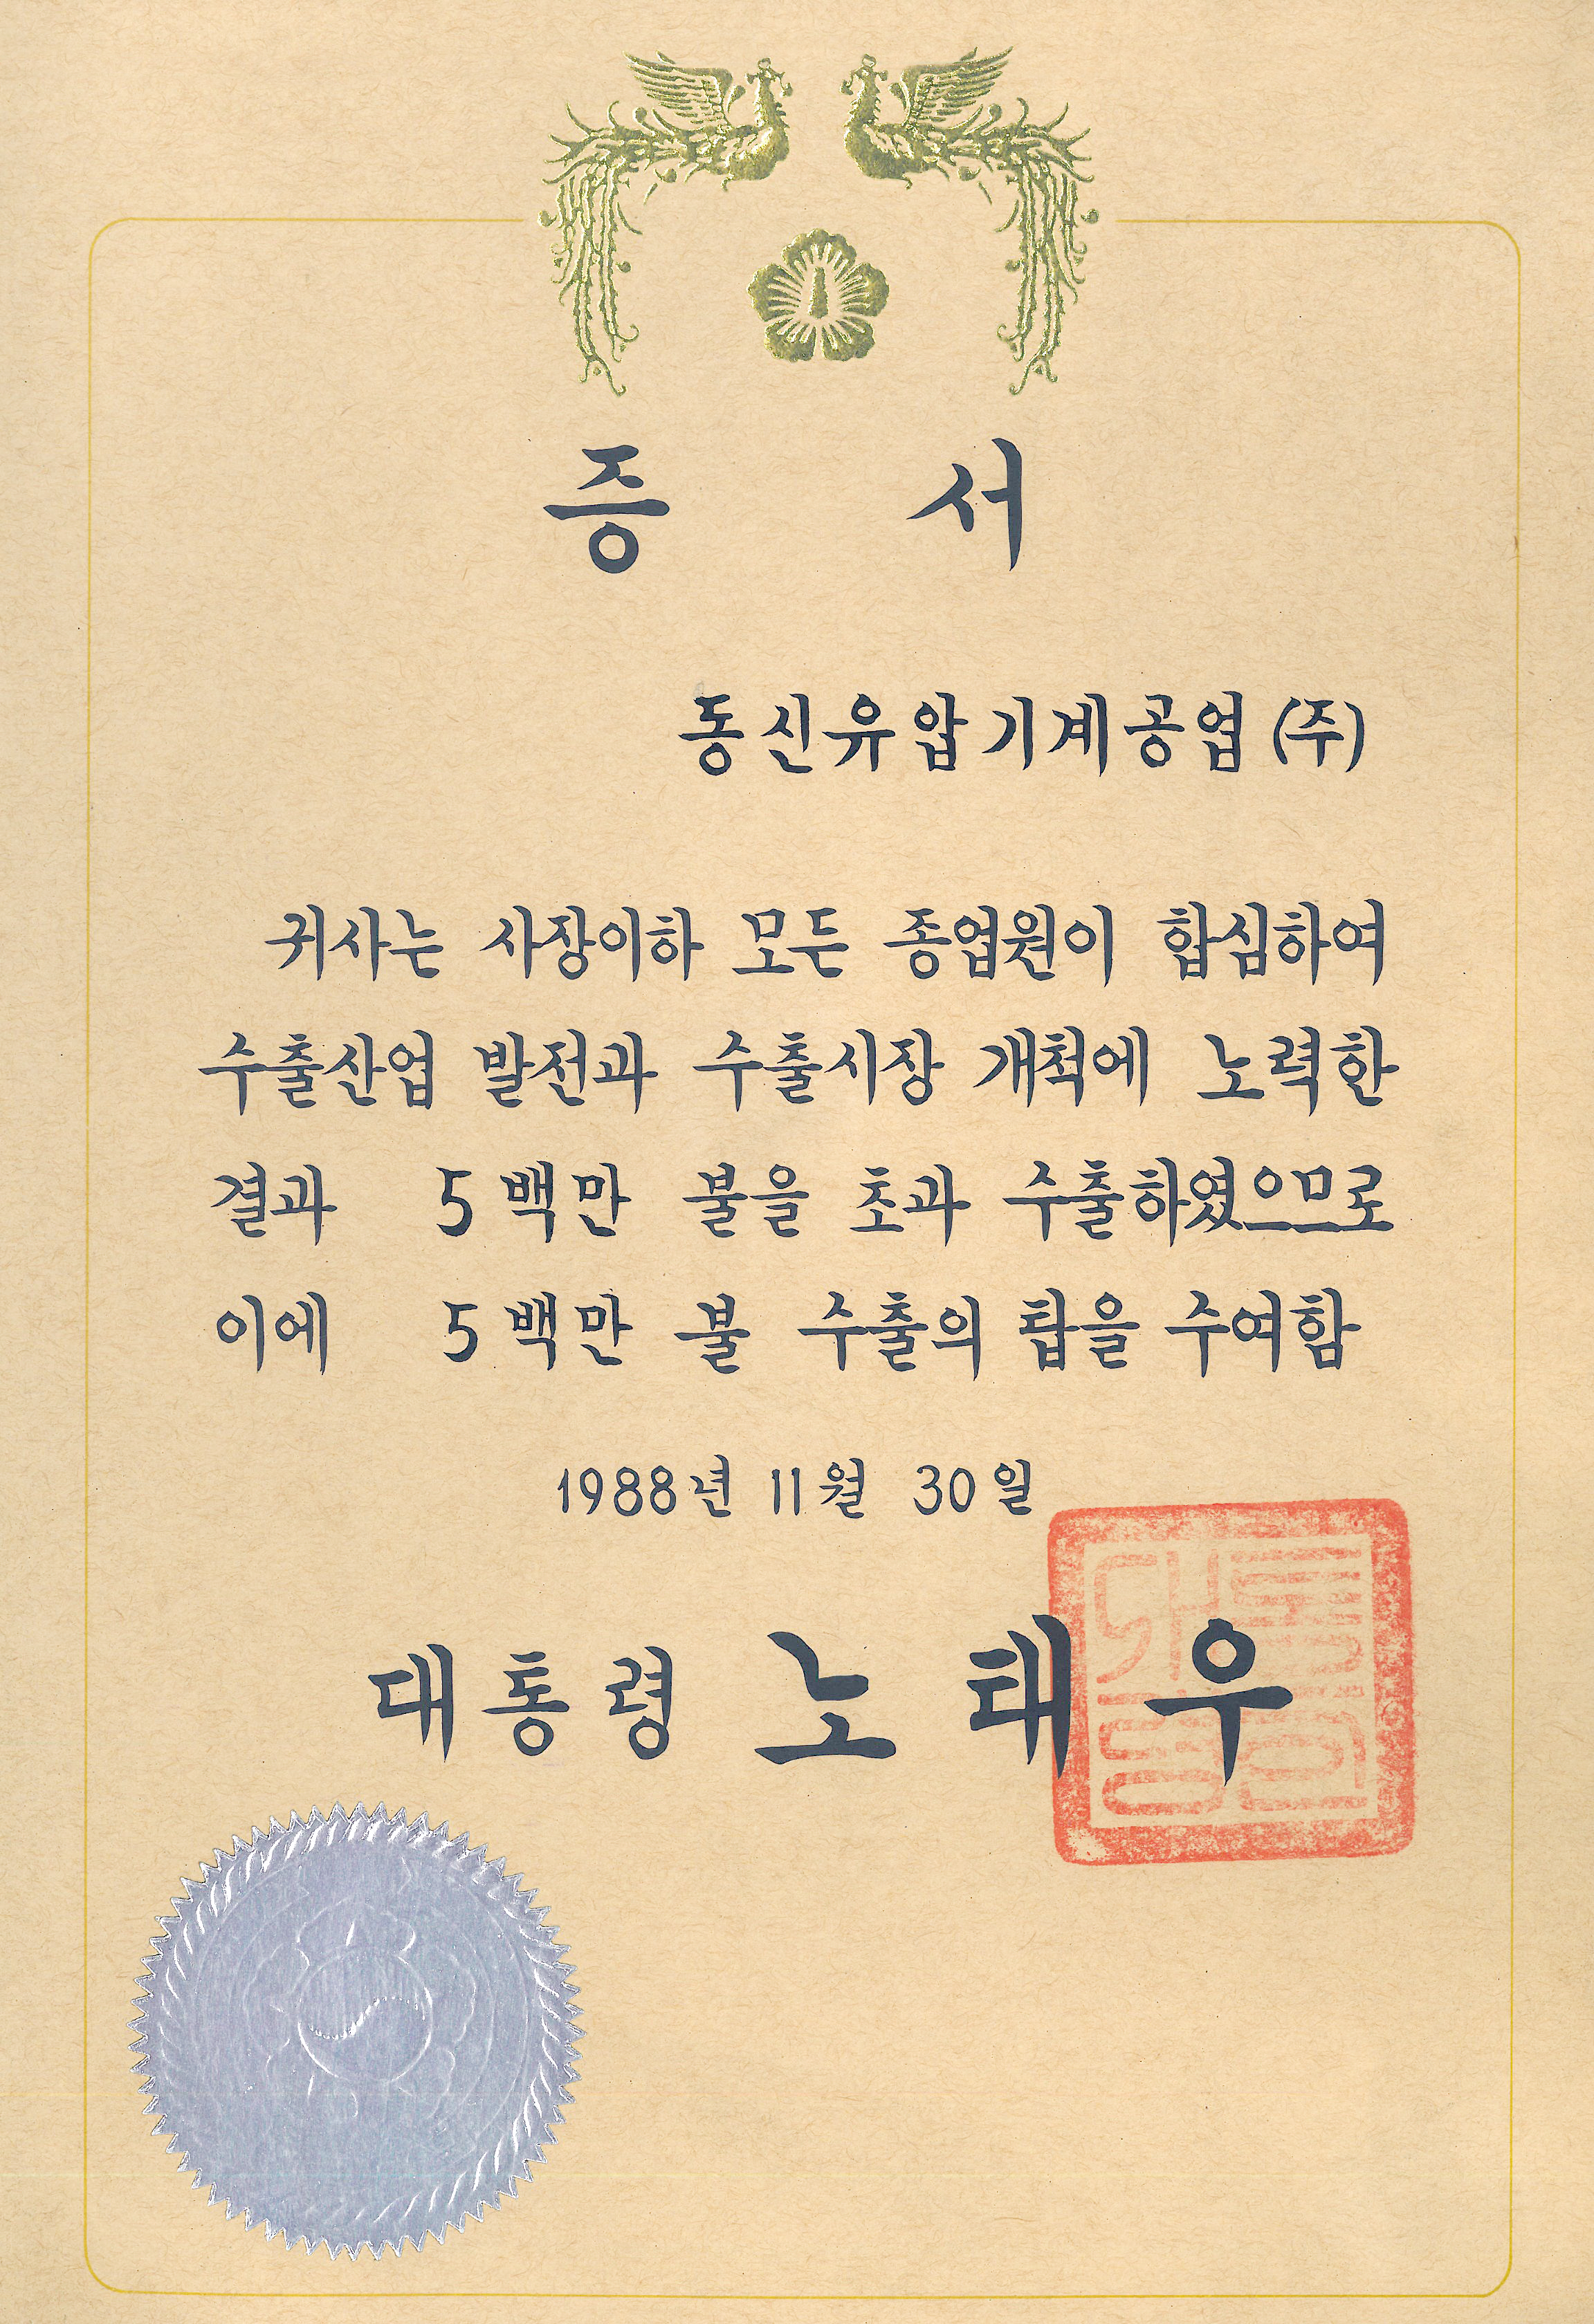 증 서
동신유압기계공업(주)
귀사는 사장이하 모든 종업원이 합심하여
수출산업 발전과 수출시장 개척에 노력한
결과 5백만 불을 초과 수출하였으므로
이에 5백만 불 수출의 탑을 수여함
1988년 11월 30일
대통령 노태우